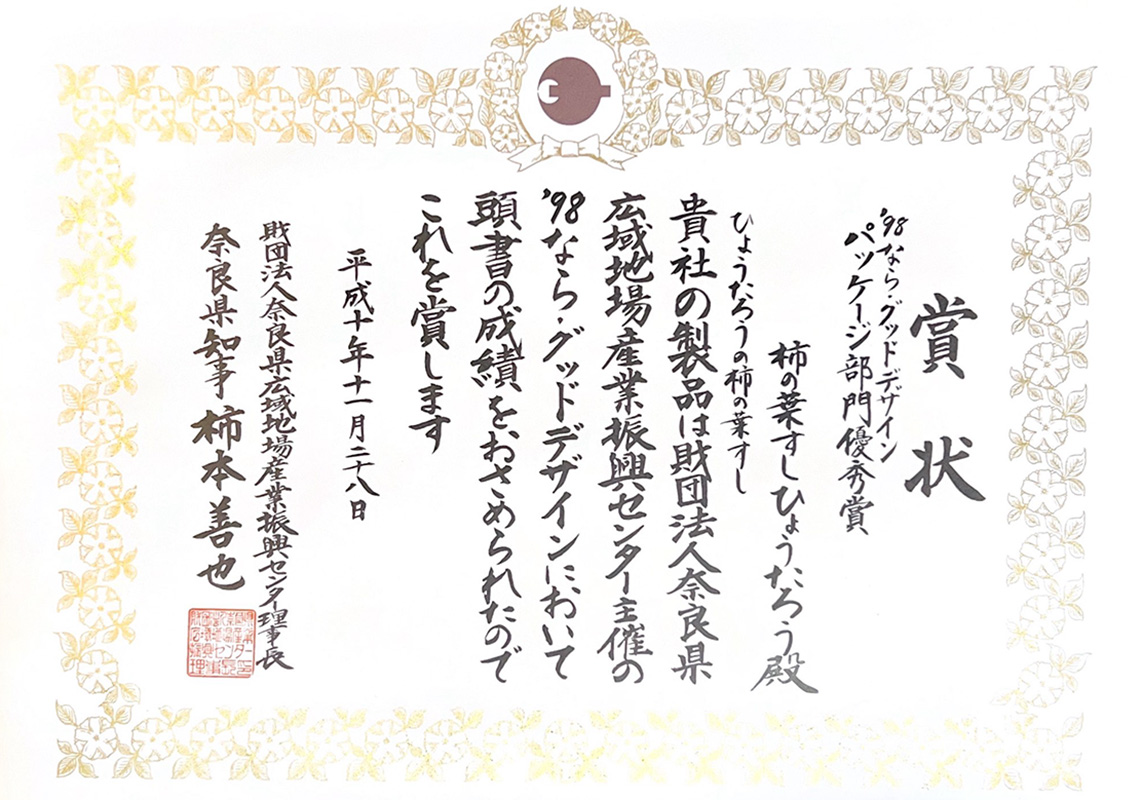 賞状
'98なら・グッドデザイン
パッケージ部門優秀賞
柿の葉すしひょうたろう殿
ひょうたろうの柿の葉すし
貴社の製品は財団法人奈良県
広域地場産業振興センター主催の
'98なら・グッドデザインにおいて
頭書の成績をおさめられたので
これを賞します
平成十年十一月二十八日
財団法人奈良県広域地場産業振興センター理事長
奈良県知事 柿本善也